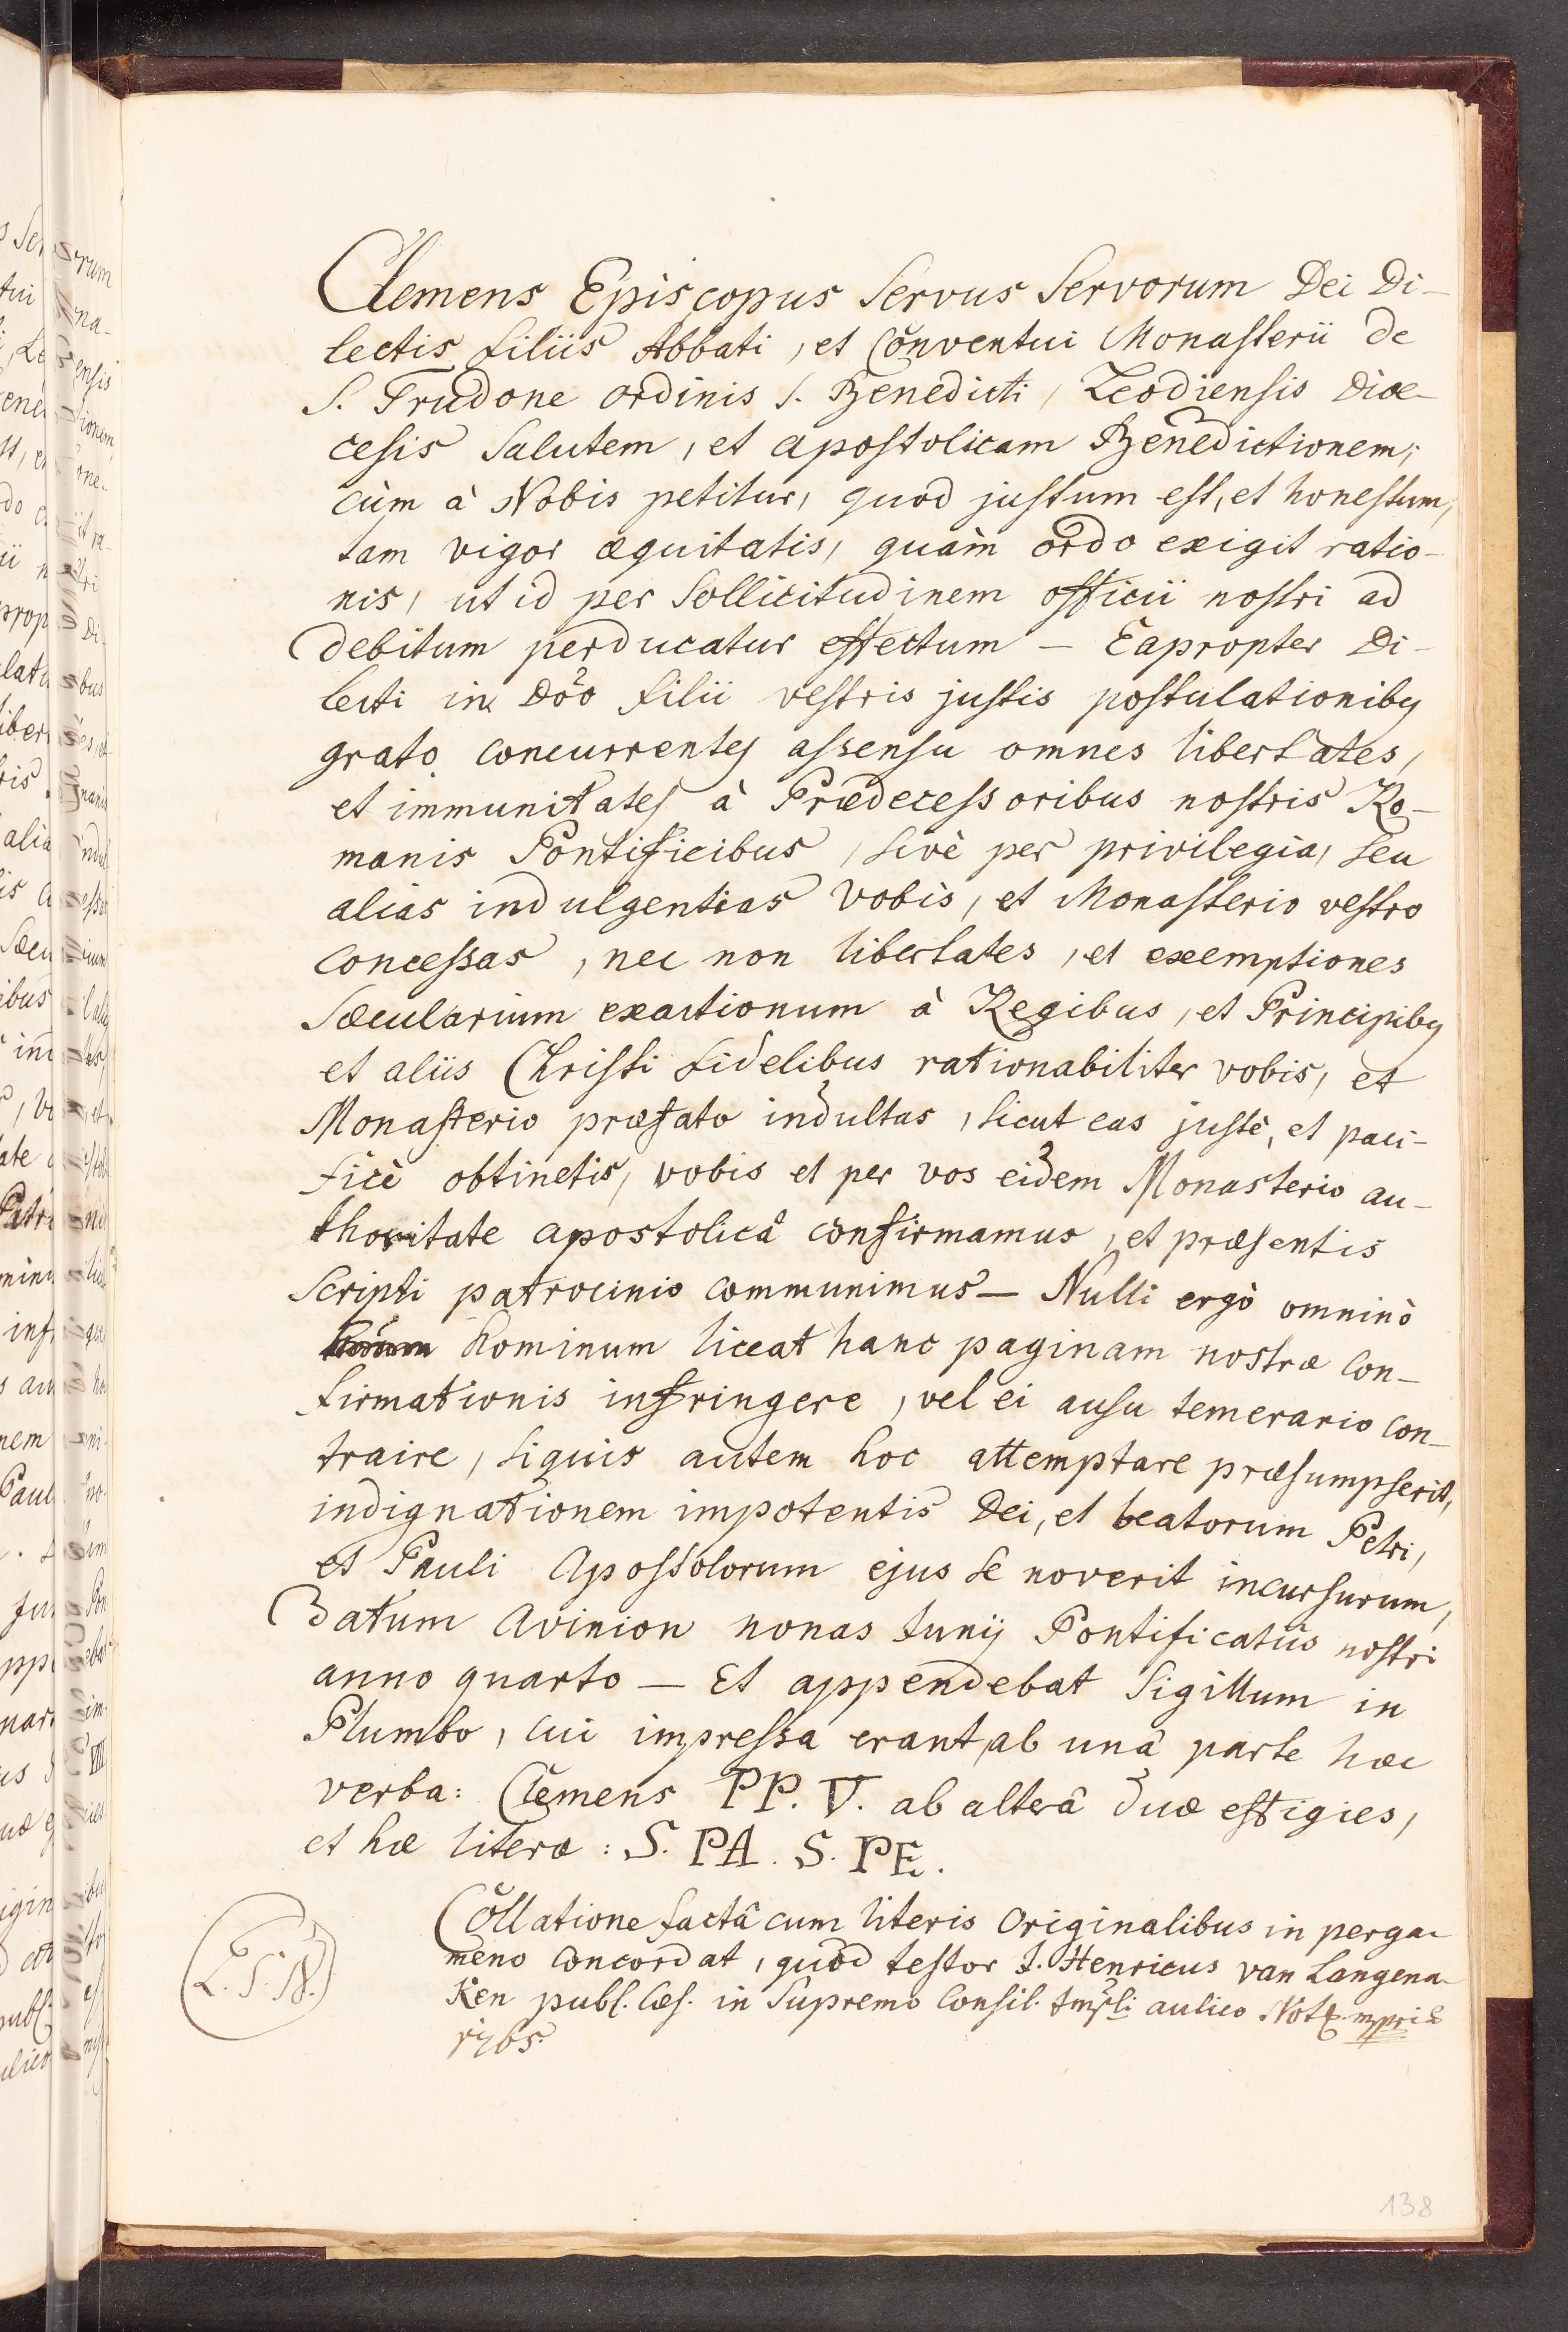 Clemens Episcopus Servus Servorum Dei Di-
lectis filiis Abbati, et Conventui Monasterii de
S. Trudone ordinis S. Benedicti, Leodiensis Diœ-
cesis Salutem, et apostolicam Benedictionem;
cùm à Nobis petitur, quod justum est, et honestum,
tam vigor æquitatis, quàm ordo exigit ratio-
nis, ut id per Sollicitudinem officii nostri ad
debitum perducatur effectum — Eapropter Di-
lecti in Dño filii vestris justis postulationibꝰ
grato concurrentes assensu omnes libertates,
et immunitates à Prædecessoribus nostris Ro-
manis Pontificibus, sivè per privilegia, seu
alias indulgentias vobis, et Monasterio vestro
concessas, nec non libertates, et exemptiones
Sæcularium exactionum à Regibus, et Principibꝰ
et aliis Christi fidelibus rationabiliter vobis, et
Monasterio præfato indultas, sicut eas justè, et paci-
ficè obtinetis, vobis et per vos eidem Monasterio au-
thoritate apostolicâ confirmamus, et præsentis
scripti patrocinio communimus — Nulli ergò omninò
hominum liceat hanc paginam nostræ con-
firmationis infringere, vel ei ausu temerario con-
traire, siquis autem hoc attemptare præsumpserit,
indignationem impotentis Dei, et beatorum Petri,
et Pauli Apostolorum ejus se noverit incursurum,
Datum Avinion nonas Junij Pontificatûs nostri
anno quarto — Et appendebat Sigillum in
Plumbo, cui impressa erant, ab unâ parte hæc
verba: Clemens PP. V. ab alterâ duæ effigies,
et hæ literæ: S. PA. S. PE.
Collatione factâ cum literis Originalibus in perga-
meno concordat, quod testor J. Henricus van Langena-
Ken publ. Cæs. in Supremo Consil. Impli aulico Not mppriâ
1765
L. S. N.
138